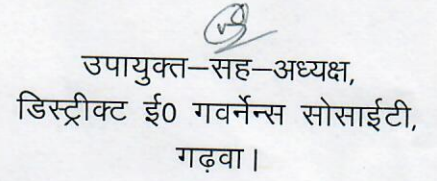 उपायुक्त–सह–अध्यक्ष,
डिस्ट्रीक्ट ई0 गवर्नेन्स सोसाईटी,
गढ़वा।